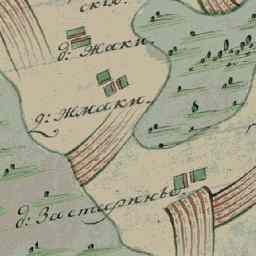 ские.
д: Жаки.
д: Жмаки.
д: Застаринье.